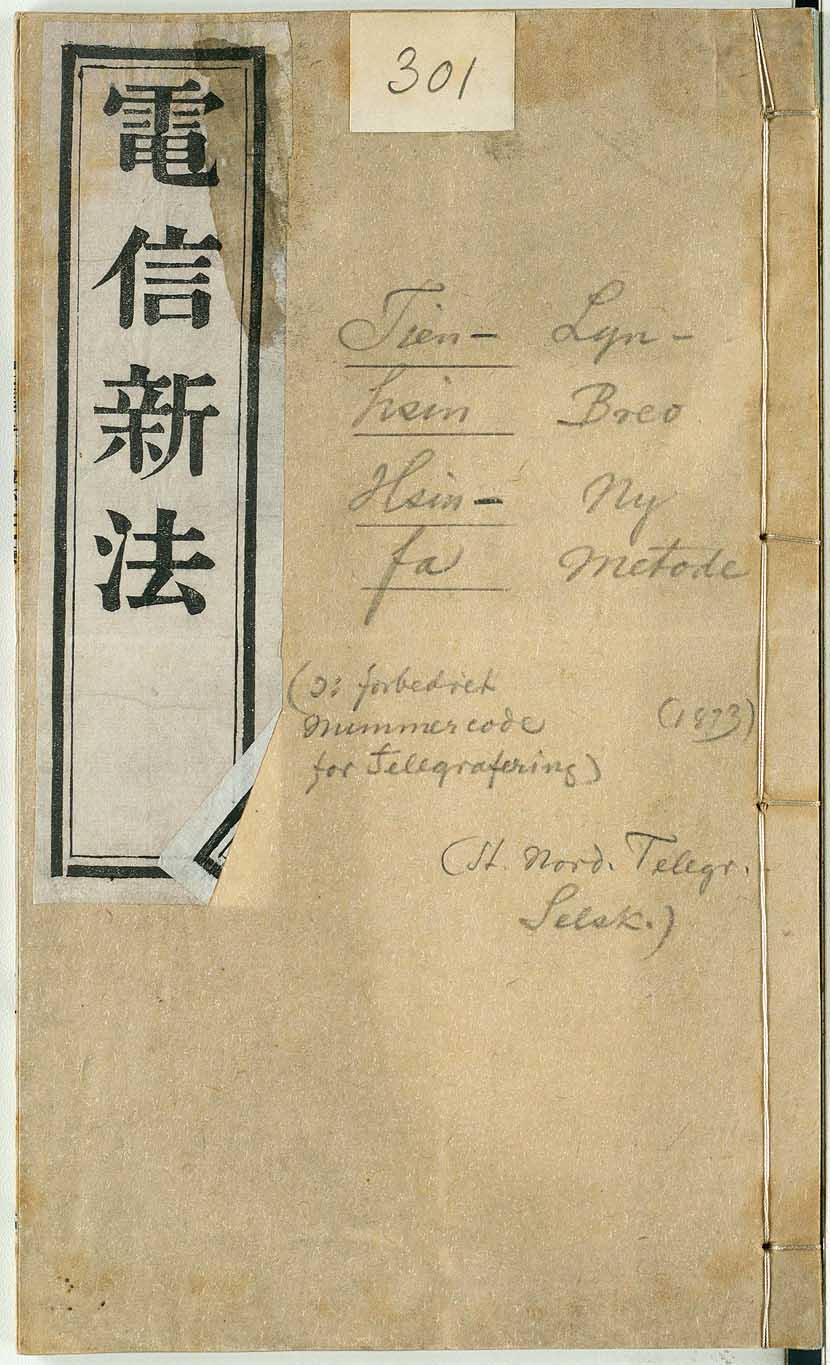 301
電信新法
Tien- Lyn-
hsin Brev
Hsin- Ny
fa Metode
(ɔ: forbedret
Nummercode (1873)
for Telegrafering)
(St. Nord. Telegr.
Selsk.)